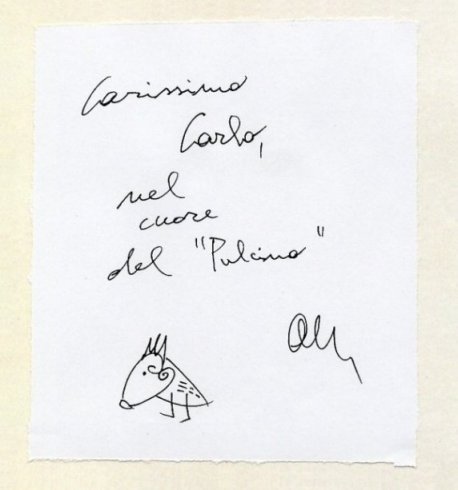 Carissimo
Carlo,
nel
cuore
del "Pulcino"